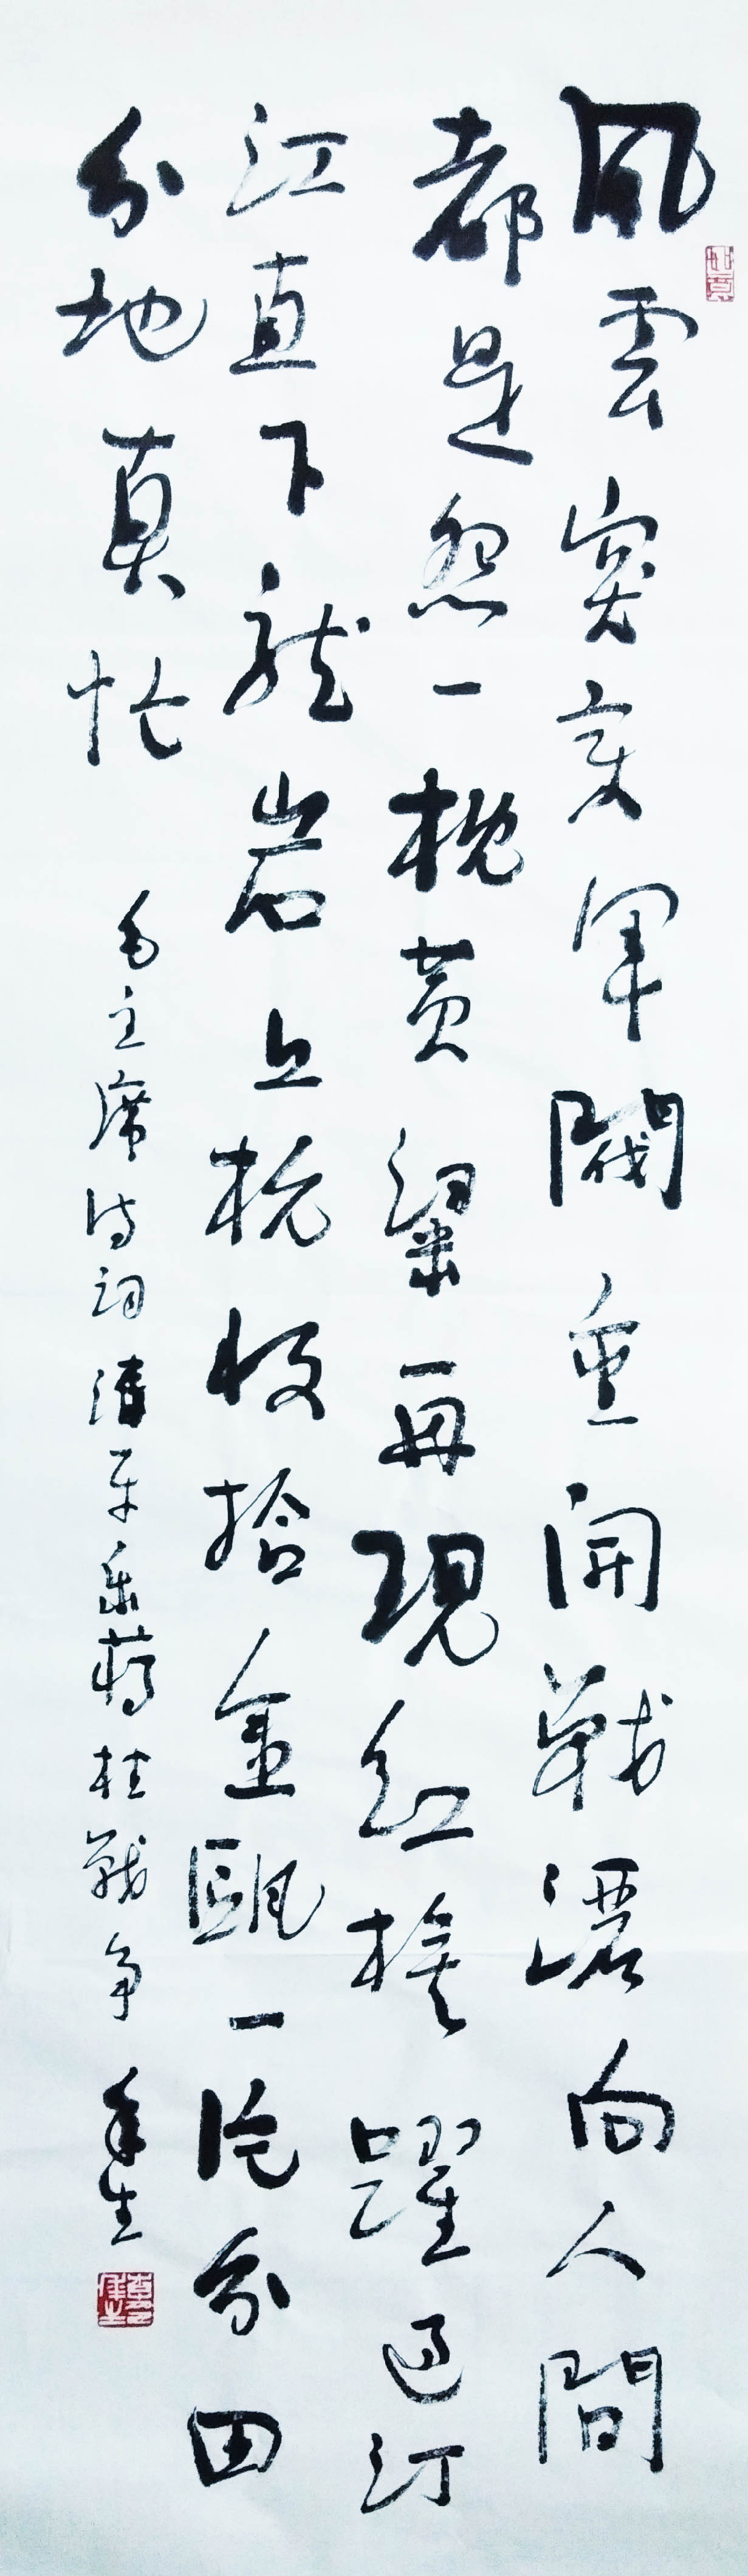 風雲突变軍閥重開戰灑向人間
都是怨一枕黄粱再現紅旗躍過汀
江直下龍岩上杭收拾金甌一片分田
分地真忙 毛主席诗词清平乐蒋桂戰争 年生